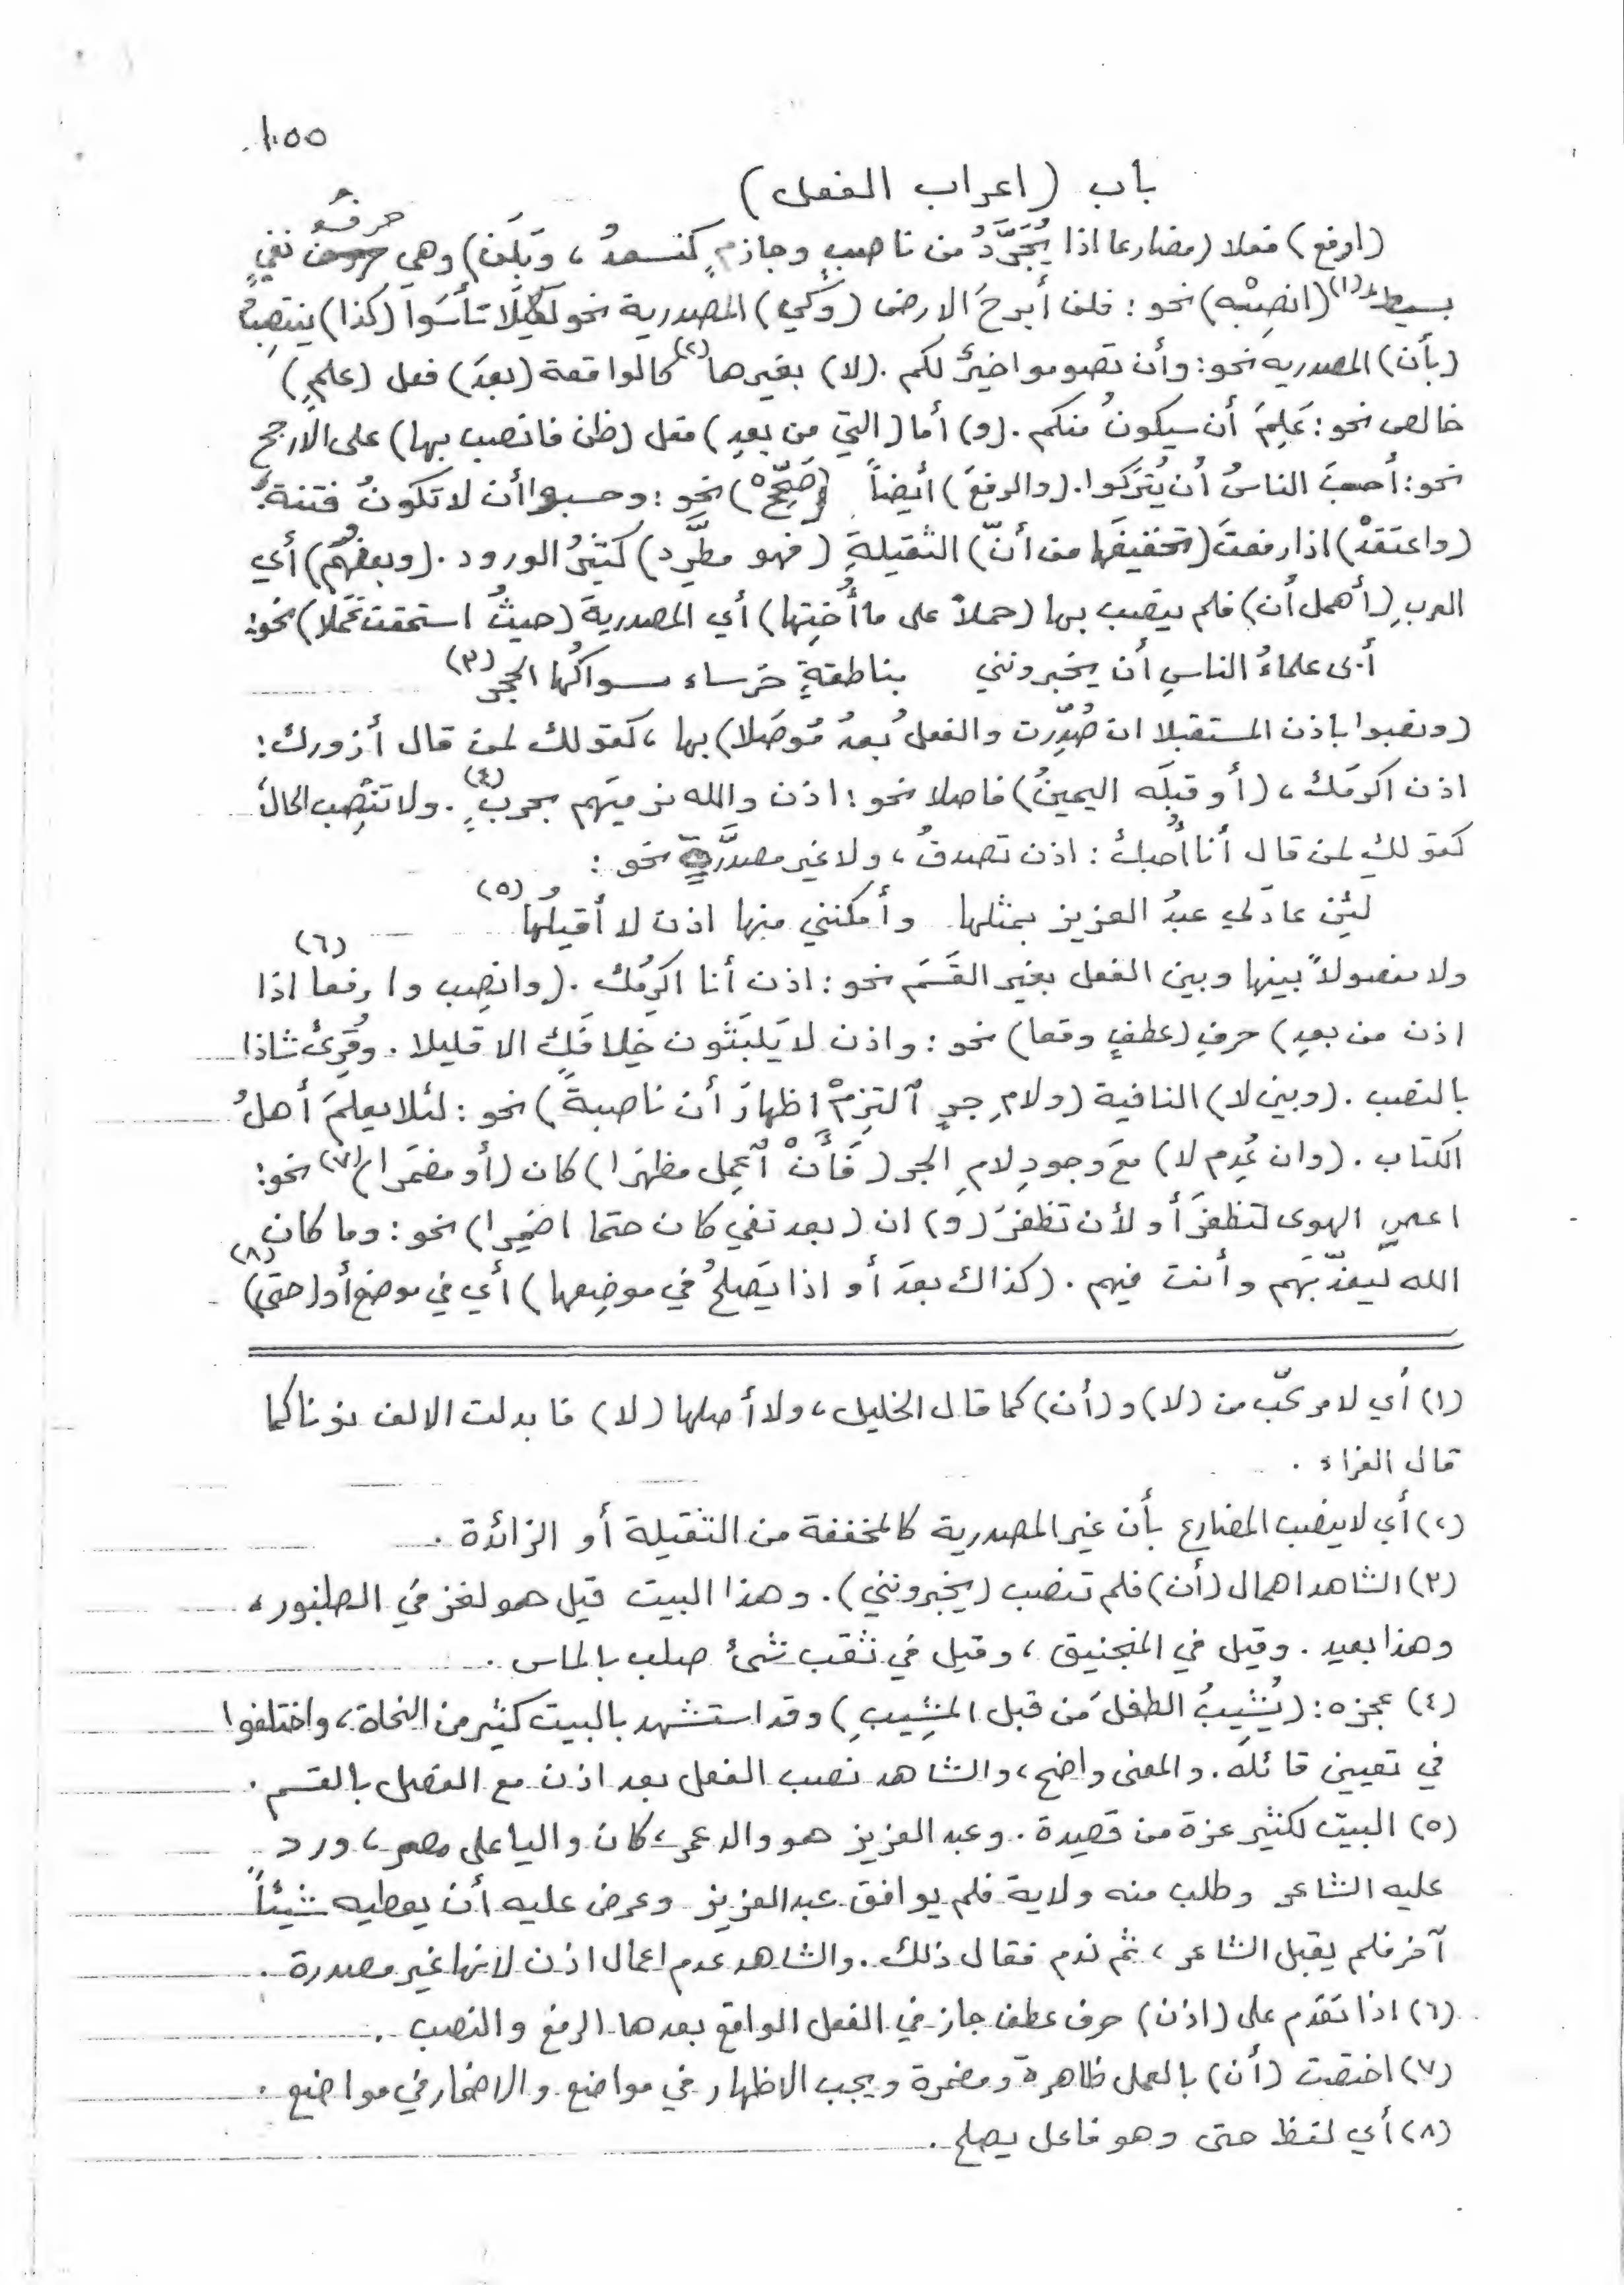 ١٠٥٥
باب (اعراب الفعل)
(ارفع) فعلا (مضارعا اذا يُجَرَّدُ من ناصبٍ وجازمٍ كتسعدُ، وبِلَن) وهي حرفُ نفيٍ
بسيط(١) (انصِبْه) نحو: فلن أبرحَ الارض (وكَي) المصدرية نحو لكيلا تأسَوا (كذا) ينتصبُ
(بأن) المصدريه نحو: وأن تصوموا خيرٌ لكم. (لا) بغيرها(٢) كالواقعة (بعدَ) فعل (علمٍ)
خالص نحو: عَلِمَ أن سيكونُ منكم. (و) أما (التي من بعدِ) فعل (ظن فانصب بها) على الارجح
نحو: أحسبَ الناسُ أن يُترَكوا. (والرفعَ) أيضاً (صَحِّحْ) نحو: وحسبوا أن لا تكونُ فتنةٌ
(واعتقدْ) اذا رفعتَ (تخفيفَها من أنّ) الثقيلةِ (فهو مطَّرِد) كثيرُ الورود. (وبعضُهُم) أي
العربِ (أهمل أن) فلم ينصب بها (حملاً على ما أُختِها) أي المصدرية (حيثُ استحقت عَمَلا) نحو:
أبى علماءُ الناسِ أن يخبرونني    بناطقةٍ خرساء سواكُها الحجر(٣)
(ونصبوا باذن المستقبلا ان صُدِّرت والفعلُ بعدُ مُوصَلا) بها، كقولك لمن قال أزورك:
اذن اكرمَك، (أو قبلَه اليمينُ) فاصلا نحو: اذن والله نرميَهم بحربٍ(٤). ولا تَنْصِب الحالَ
كقولك لمن قال أنا أُحبكَ: اذن تصدقُ، ولا غير مصدَّرةٍ نحو:
لئن عادَلي عبدُ العزيز بمثلها    وأمكنني منها اذن لا أقيلُها(٥)
ولا مفصولاً بينها وبين الفعل بغير القَسَم نحو: اذن أنا اكرمُك. (وانصِب وارفعا(٦) اذا
اذن من بعدِ) حرفِ (عطفٍ وقعا) نحو: واذن لا يَلبَثون خِلافَك الا قليلا. وقُرِئ شاذا
بالنصب. (وبين لا) النافية (ولامِ جرٍ التزِمْ اظهارَ أن ناصبةً) نحو: لئلا يعلمَ أهلُ
الكتاب. (وان عُدِم لا) معَ وجودِ لامِ الجر (فَأَنْ اَعمِل مظهَرا) كان (أو مضمَرا)(٧) نحو:
اعصِ الهوى لتظفرَ أو لأن تظفرَ (و) ان (بعد نفي كان حتما اضمِرا) نحو: وما كان
الله ليعذّبَهم وأنت فيهم. (كذاك بعدَ أو اذا يَصلحُ في موضِعها) أي في موضع أو (حتى)(٨)
(١) أي لا مركّب من (لا) و (أن) كما قال الخليل، ولا أصلها (لا) فابدلت الالف نونا كما
قال الفراء.
(٢) أي لا ينصب المضارع بأن غير المصدرية كالمخففة من الثقيلة أو الزائدة.
(٣) الشاهد اهمال (أن) فلم تنصب (يخبرونني). وهذا البيت قيل هو لغز في الطنبور،
وهذا بعيد. وقيل في المنجنيق، وقيل في ثقب شئ صلب بالماس.
(٤) عجزه: (يُشِيبُ الطفلَ من قبل المشِيبِ) وقد استشهد بالبيت كثير من النحاة، واختلفوا
في تعيين قائله. والمعنى واضح، والشاهد نصب الفعل بعد اذن مع الفصل بالقسم.
(٥) البيت لكثير عزة من قصيدة. وعبد العزيز هو والد عمر، كان واليا على مصر، ورد
عليه الشاعر وطلب منه ولاية فلم يوافق عبد العزيز وعرض عليه أن يعطيه شيئاً
آخر فلم يقبل الشاعر، ثم ندم فقال ذلك. والشاهد عدم اعمال اذن لانها غير مصدرة.
(٦) اذا تقدم على (اذن) حرف عطف جاز في الفعل الواقع بعدها الرفع والنصب.
(٧) اختصت (أن) بالعمل ظاهرة ومضمرة ويجب الاظهار في مواضع والاضمار في مواضع.
(٨) أي لفظ حتى وهو فاعل يصلح.